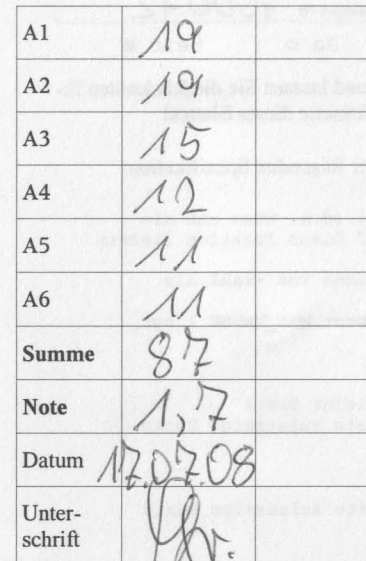 A1 19
A2 19
A3 15
A4 12
A5 11
A6 11
Summe 87
Note 1,7
Datum 17.07.08
Unter-
schrift